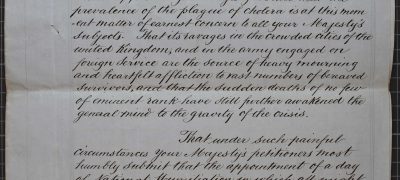 prevalence of the plague of Cholera is at this mom-
ent matter of earnest concern to all your Majesty's
Subjects. That its ravages in the crowded cities of the
united Kingdom, and in the army engaged on
foreign Service are the source of heavy mourning
and heartfelt affliction to vast numbers of bereaved
Survivors, and that the sudden deaths of no few
of eminent rank have still further awakened the
general mind to the gravity of the crisis.
That under such painful
circumstances Your Majesty's petitioners most
humbly submit that the appointment of a day
of National Humiliation in which all might